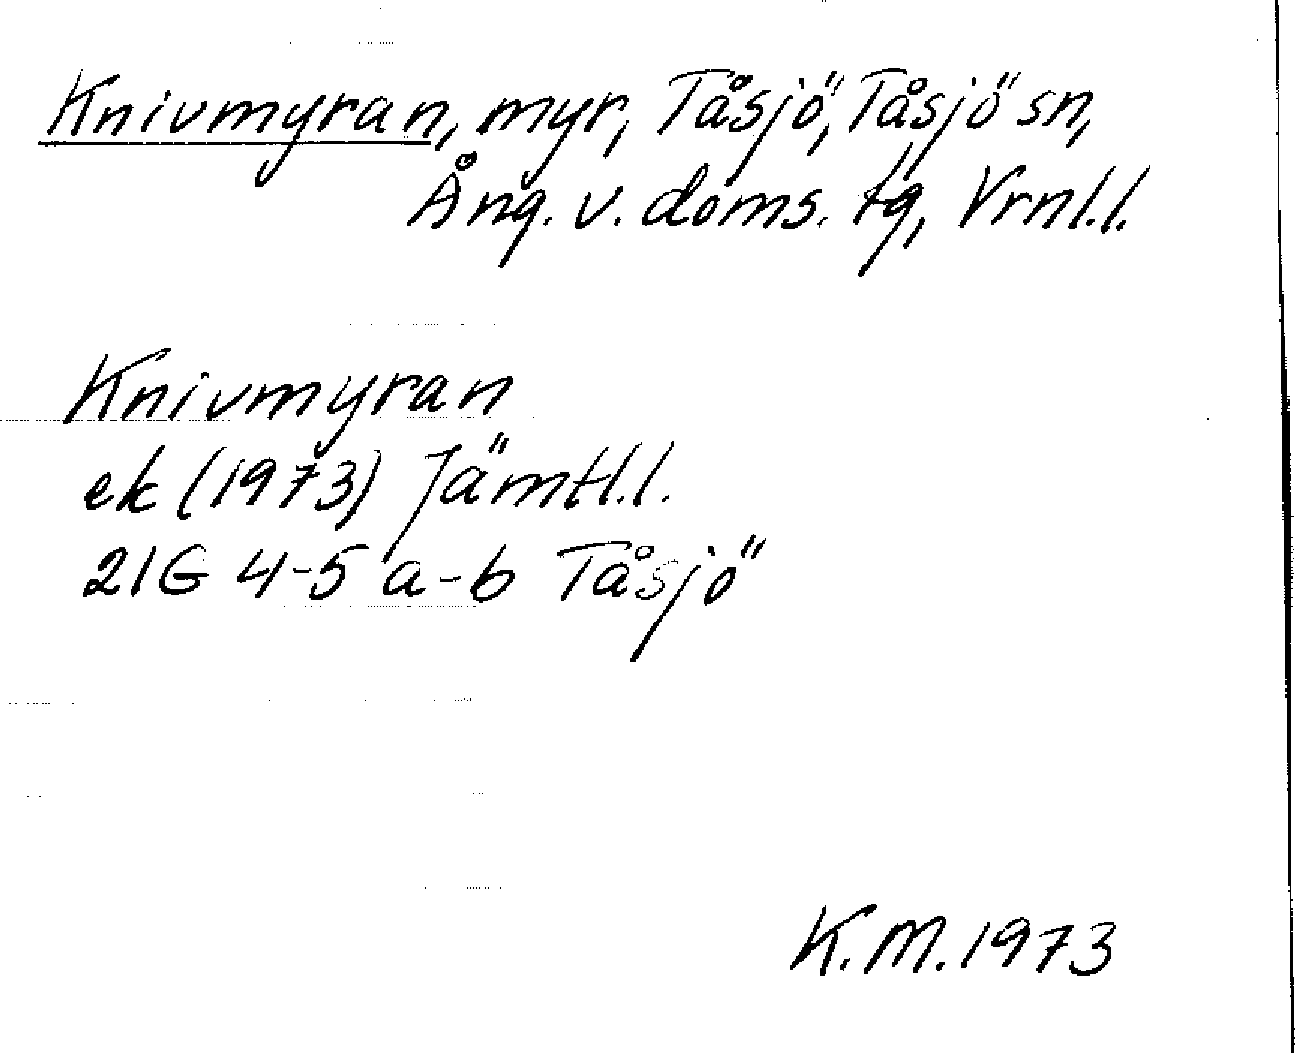 Knivmyran, myr, Tåsjö, Tåsjö sn,
Ång. v. doms. tg, Vrnl.l.
Knivmyran
ek (1973) Jämtl.l.
21G 4-5 a-b Tåsjö
K.M. 1973